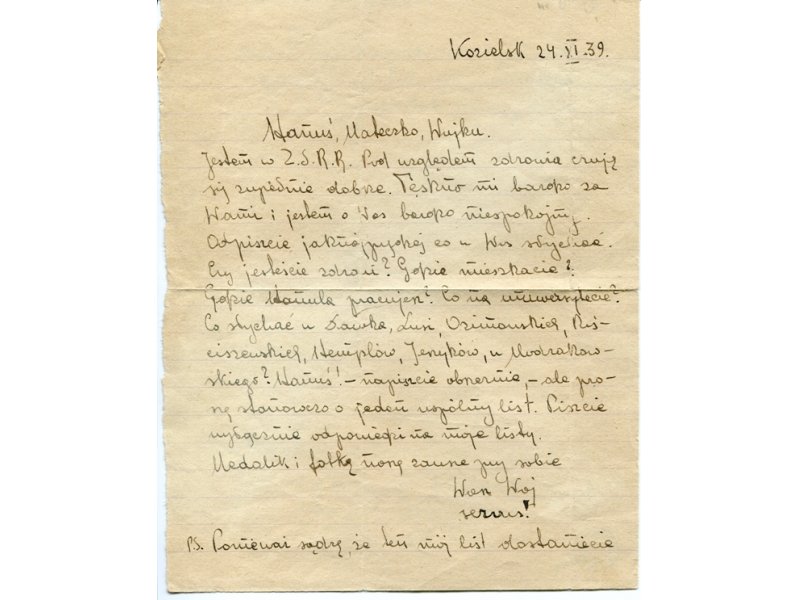 Kozielsk 24.XI.39.
Hanuś, Mateczko, Wujku.
Jestem w Z.S.R.R. Pod względem zdrowia czuję
się zupełnie dobrze. Tęskno mi bardzo za
Wami i jestem o Was bardzo niespokojny.
Odpiszcie jaknajprędzej co u Was słychać.
Czy jesteście zdrowi? Gdzie mieszkacie?
Gdzie Hanula pracujesz? Co na uniwersytecie?
Co słychać u Sławka, Lusi,
Hemplów, Jenyków, u Modrakow-
skiego? Hanuś! – napiszcie obszernie, – ale pro-
szę stanowczo o jeden wspólny list. Piszcie
wyłącznie odpowiedzi na moje listy.
Medalik i fotkę noszę zawsze przy sobie
Wasz Woj
serwus!
PS. Ponieważ sądzę, że ten mój list dostaniecie